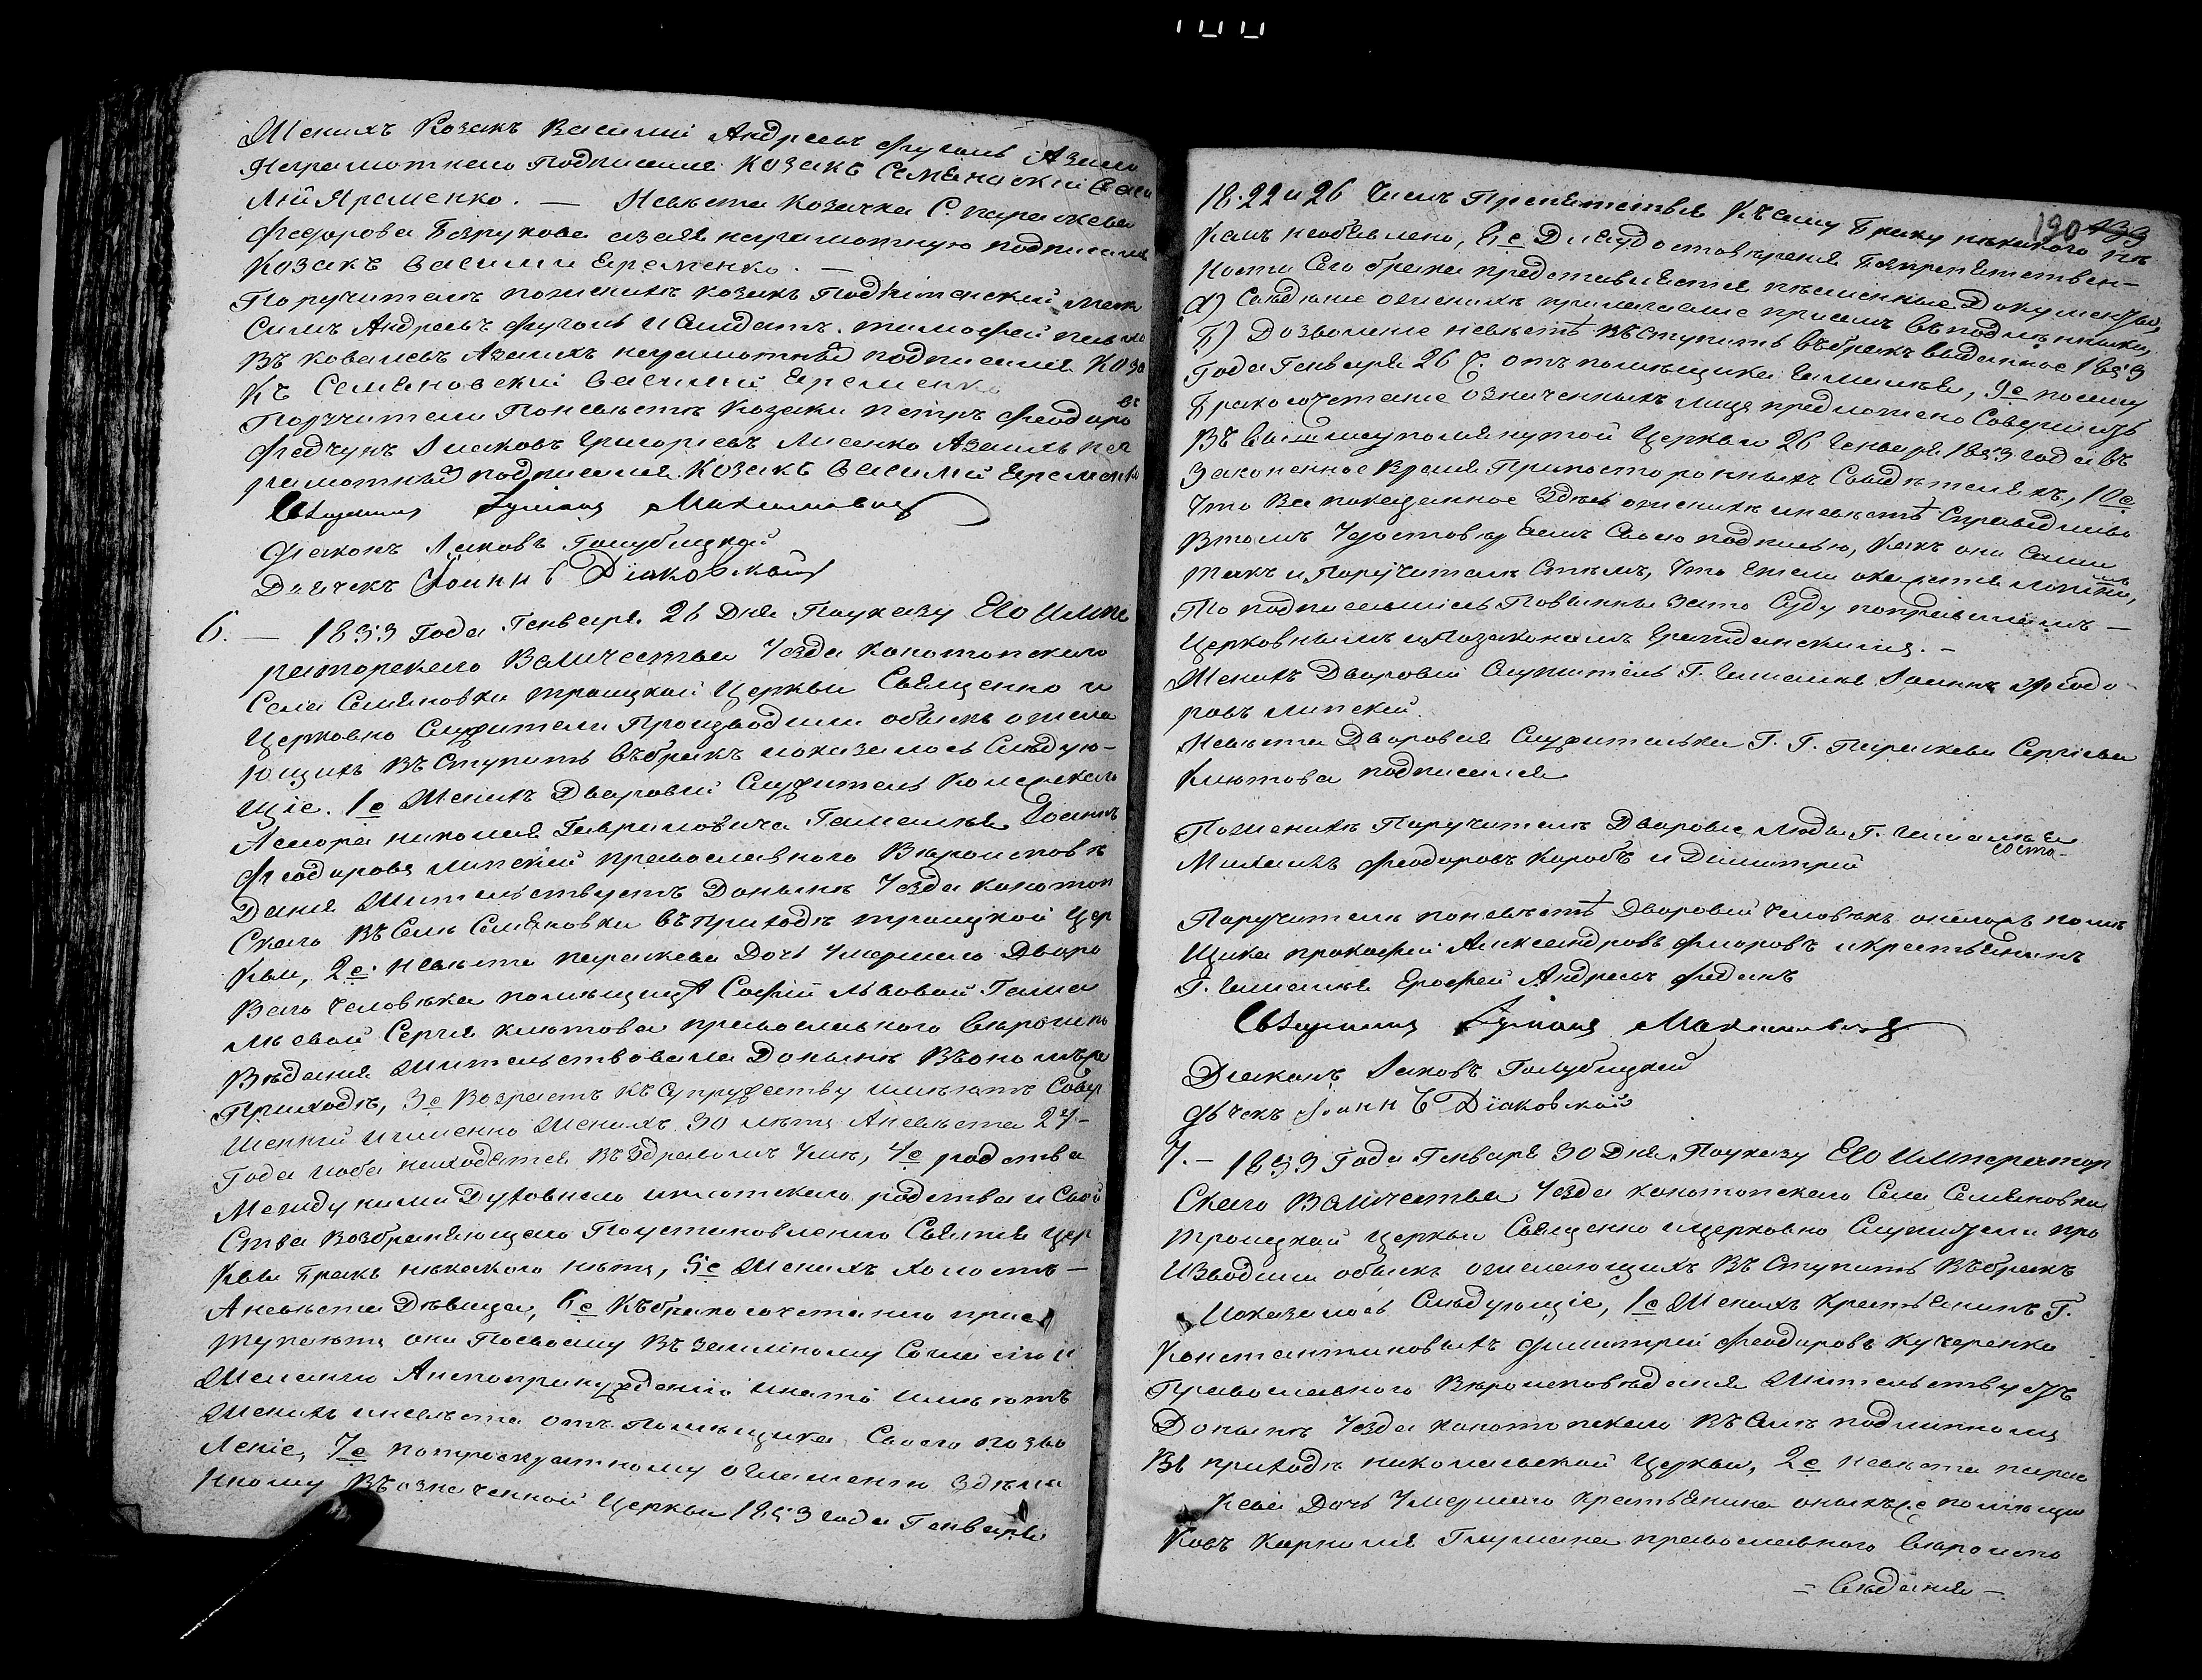 Женихъ Козакъ Василий Андреевъ Фуголь А за его
Неграмотнаго Подписался Козакъ Семяновский Васи
лий Яременко. — Невѣста Козачка С. параскева
Федорова Безрукова а за ея неграмотную подписался
Козакъ Василий Еременко. —
Поручители по женихѣ козакъ Подлипенский Мак
симъ Андреевъ Фуголь и Солдатъ тимофей
въ ковалевъ А за ихъ неграмотныхъ подписался Коза
къ Семяновский Василий Еременко
Поручители По невѣстѣ Козаки петръ Феодоро
въ
Федчунъ Иаковъ Григорьевъ Лисенко А за ихъ нег
рамотныхъ подписался Козакъ Василий Еременко
Священникъ Максимовичъ
Диаконъ Иаковъ Голубицкий
Дьячекъ Иоаннъ Диаковский
6. — 1853 Года Генваря 26 Дня По указу Его Импе
раторскаго Величества Уезда конотопскаго
Села Семяновки троицкой Церкви Священно и
Церковно Служители Производили обыскъ о жела
ющихъ въ Ступить въ бракъ и оказалось Слѣдую-
щіе. 1е Женихъ Дворовый Служитель Колежскаго
Асесора николая Гавриловича Гамалѣя Иоаннъ
Феодоровъ липский православного Вѣроисповѣ
данія Жительствуетъ Донынѣ Уезда конотоп
Скаго въ Селѣ Семяновки въ Приходѣ троицкой Цер
кви, 2е невѣста параскева Дочь Умершаго Дворо
Ваго Человѣка помѣщицы Софии Львовой Гама
лѣевой Сергія клютова православного Вѣроиспо
вѣданія Жительствовала Донынѣ въ ономъ же
Приходѣ, 3е Возрастъ къ Супружеству имѣютъ Совер
шенный и именно Женихъ 30 лѣтъ А невѣста 24-
Года и оба находятся въ Здравомъ Умѣ, 4е родства
Между ними Духовнаго и плотскаго родства и Свой
Ства Возбраняющаго По установленію Святыя Цер
кви Бракъ никакого нѣтъ, 5е Женихъ холостъ —
А невѣста Дѣвица, 6е къ бракосочетанію прис
тупаютъ они По своему взаимному Согласію и
Желанію А не по принужденію и на то имѣютъ
Женихъ и невѣста отъ Помѣщика Своего позво
леніе, 7е по троекратному оглашенію Здѣла
нному въ означенной Церкви 1853 года Генваря
190 189
18. 22 и 26 Числъ Препятствія къ сему Браку никакого ни
кемъ не объявлено, 8е Для удостовѣренія Безпрепятствен-
ности Сего брака представляется писменные Документы,
А) Свѣдѣніе о женихѣ прилагаемое присемъ въ подлинникѣ,
Б) Дозволеніе невѣстѣ въ Ступить въ бракъ выданное 1853
Года Генваря 26 ч. отъ помѣщика Гамалѣя, 9е по сему
Бракосочетаніе Означенныхъ лицъ предположено Совершить
въ вышеупомянутой Церкви 26 Генваря 1853 года въ
Законенное Время При посторонныхъ Свидѣтеляхъ, 10е
Что Все показанное Здѣсь о женихѣ и невѣстѣ Справедливо
Въ томъ Удостовѣряемъ Своею подписью, Какъ они Сами
Такъ и Поручители Стѣмъ, Что Ежели окажется ложно,
То подписавшіесь Повинны за то Суду по правиламъ —
Церковнымъ и По законамъ Гражданскимъ. —
Женихъ Дворовый Служитель Г. Гамалѣя Иоаннъ Феодо-
ровъ липский.
Невѣста Дворовая Служителька Г. Г. Параскева Сергіева
Клютова подписался
По женихѣ Поручители Дворовые Люди Г. Гамалѣя
Михаилъ Феодоровъ Коробъ и Димитрий
Поручители по невѣстѣ Дворовый Человѣкъ онагожъ помѣ
щика прокофий Александровъ Флоровъ и крестьянинъ
Г. Гамалѣя Ерофей Андреевъ Феданъ
Священникъ Максимовичъ
Диаконъ Иаковъ Голубицкий
Дьячекъ Иоаннъ Диаковский
7. — 1853 Года Генваря 30 Дня По указу Его Император
Скаго Величества Уезда конотопскаго Села Семяновки
троицкой Церкви Священно и церковно Служители про
изводили обыскъ о желающихъ въ Ступить въ бракъ
и оказалось Слѣдующіе, 1е Женихъ крестьянинъ Г.
Константиновыхъ Димитрий Феодоровъ Кучеренко
Православного Вѣроисповѣданія Жительствуетъ
Донынѣ Уезда конотопскаго въ Селѣ подлипномъ
въ приходѣ николаевской Церкви, 2е невѣста парас
кева Дочь Умершаго крестьянина оныхъ же помѣщи
ковъ Корнилія Глушана православного Вѣроиспо
— вѣданія —